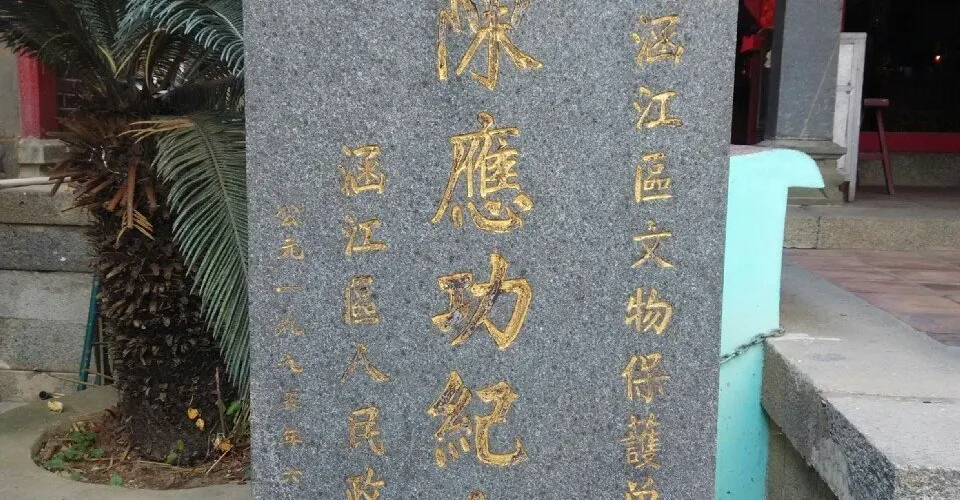 涵江區文物保護單
陳應功紀
涵江區人民政
公元一九九五年六